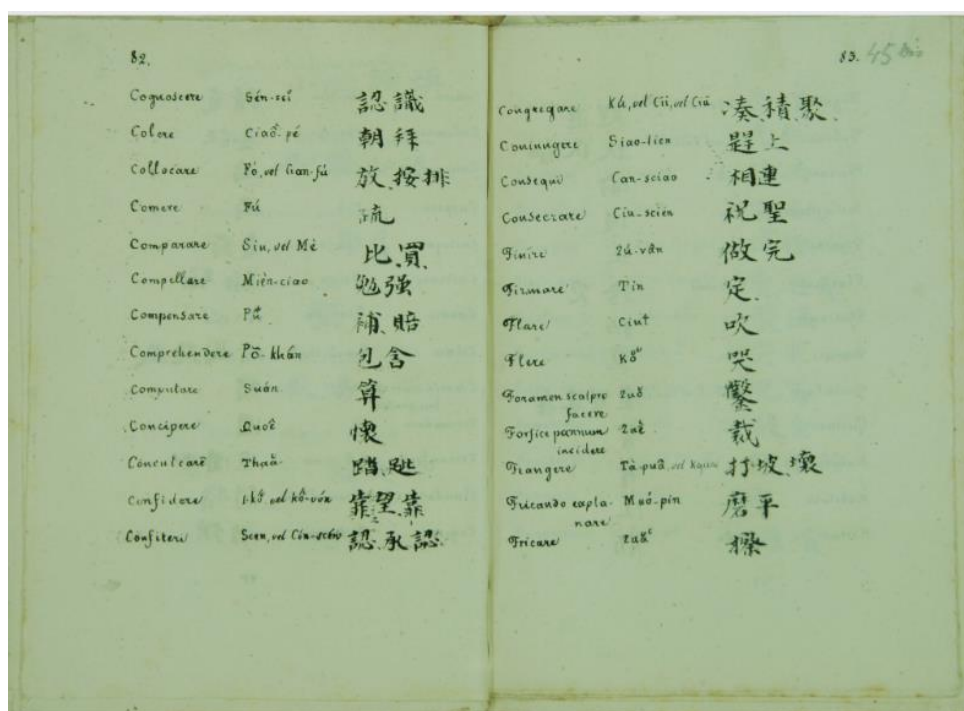 82.
Cognoscere Sén-scí 認識
Colere Ciaŏ-pé 朝拜
Collocare Fó, vel Gan-fú 放、按排
Comere Fú 疏
Comparare Siu, vel Mè 比、買
Compellare Mièn-ciao 勉強
Compensare Pŭ 補、賠
Comprehendere Pō-khán 包含
Computare Suán 算
Concipere Quoĕ 懷
Conculcare Thaă
Confidere vel kŏ-vón 靠望、靠
Confiteri Scen, vel 認、承認
83. 45 bis
Congregare vel Ciĭ, vel 凑、積、聚
Coniungere Siao-lien 趕上
Consequi Can-sciao 相連
Consecrare Ciu-scièn 祝聖
Finire 2ú-vân 做完
Firmare Tín 定
Flare 吹
Flere 哭
Foramen scalpro 鑿
facere
Forfice pannum 2aĕ 裁
incidere
Frangere Tà-puă, vel 打坡、壞
Fricando expla- Muó-pin 磨平
nare
Fricare 擦